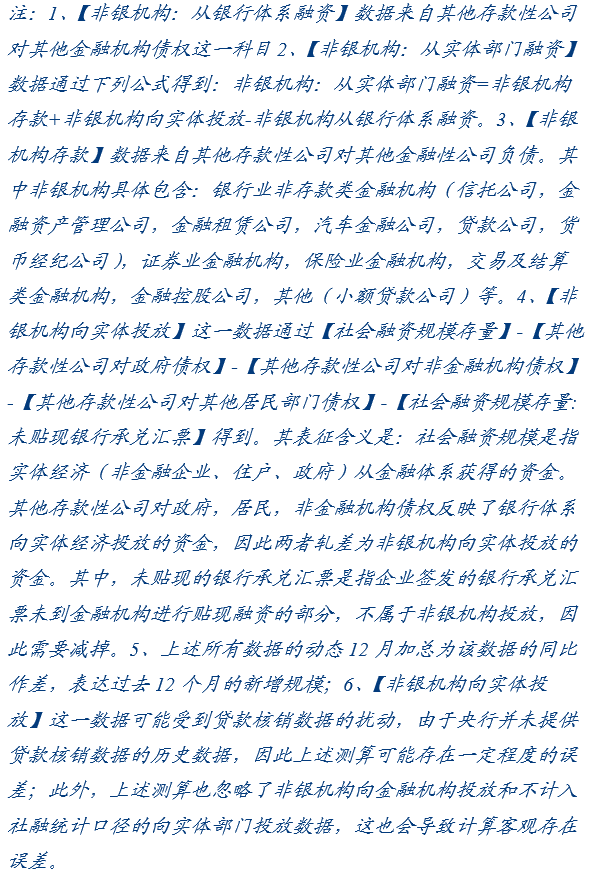 注：1、【非银机构：从银行体系融资】数据来自其他存款性公司
对其他金融机构债权这一科目 2、【非银机构：从实体部门融资】
数据通过下列公式得到：非银机构：从实体部门融资=非银机构
存款+非银机构向实体投放-非银机构从银行体系融资。3、【非银
机构存款】数据来自其他存款性公司对其他金融性公司负债。其
中非银机构具体包含：银行业非存款类金融机构（信托公司，金
融资产管理公司，金融租赁公司，汽车金融公司，贷款公司，货
币经纪公司），证券业金融机构，保险业金融机构，交易及结算
类金融机构，金融控股公司，其他（小额贷款公司）等。4、【非
银机构向实体投放】这一数据通过【社会融资规模存量】-【其他
存款性公司对政府债权】-【其他存款性公司对非金融机构债权】
-【其他存款性公司对其他居民部门债权】-【社会融资规模存量:
未贴现银行承兑汇票】得到。其表征含义是：社会融资规模是指
实体经济（非金融企业、住户、政府）从金融体系获得的资金。
其他存款性公司对政府，居民，非金融机构债权反映了银行体系
向实体经济投放的资金，因此两者轧差为非银机构向实体投放的
资金。其中，未贴现的银行承兑汇票是指企业签发的银行承兑汇
票未到金融机构进行贴现融资的部分，不属于非银机构投放，因
此需要减掉。5、上述所有数据的动态 12 月加总为该数据的同比
作差，表达过去 12 个月的新增规模；6、【非银机构向实体投
放】这一数据可能受到贷款核销数据的扰动，由于央行并未提供
贷款核销数据的历史数据，因此上述测算可能存在一定程度的误
差；此外，上述测算也忽略了非银机构向金融机构投放和不计入
社融统计口径的向实体部门投放数据，这也会导致计算客观存在
误差。